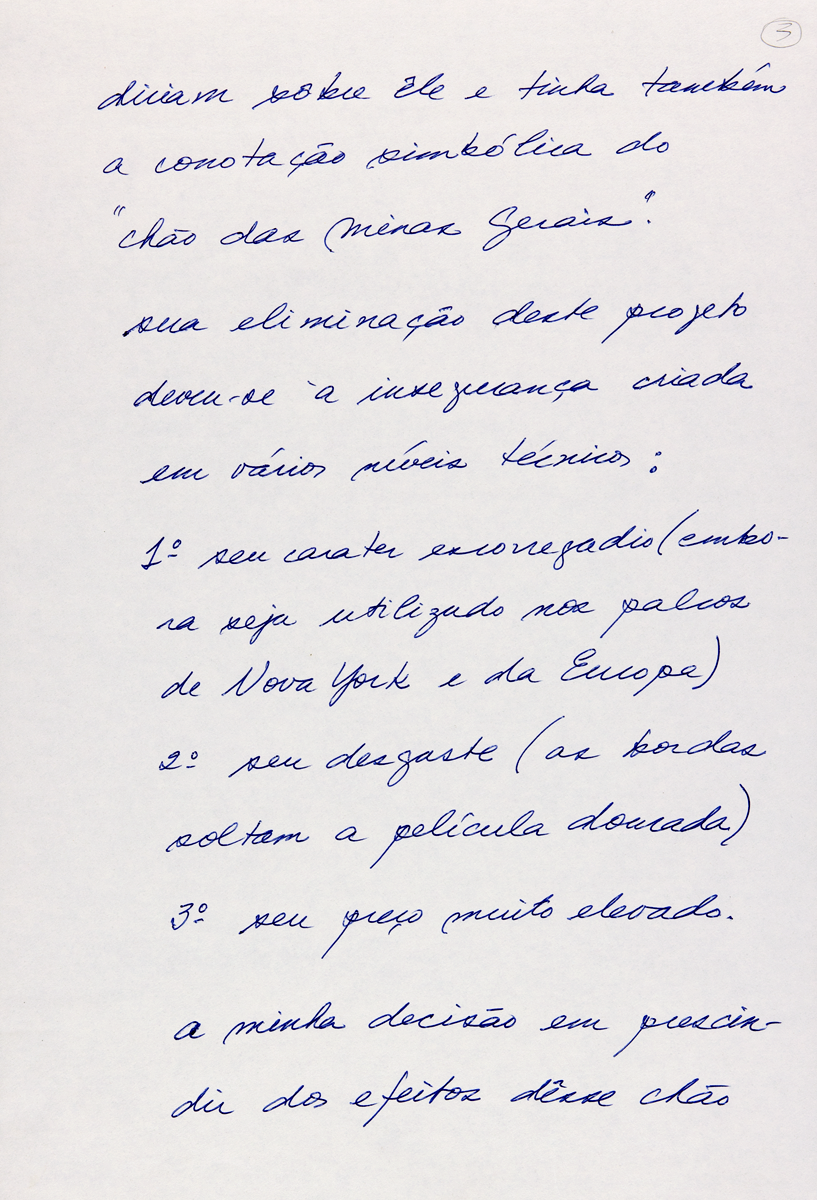 3
diriam sôbre êle e tinha também
a conotação simbólica do
"chão das Minas Gerais".
sua eliminação deste projeto
deveu-se à insegurança criada
em vários níveis técnicos:
1º seu carater escorregadio (embo-
ra seja utilizado nos palcos
de Nova York e da Europa)
2º seu desgaste (as bordas
soltam a película dourada)
3º seu preço muito elevado.
a minha decisão em prescin-
dir dos efeitos dêsse chão